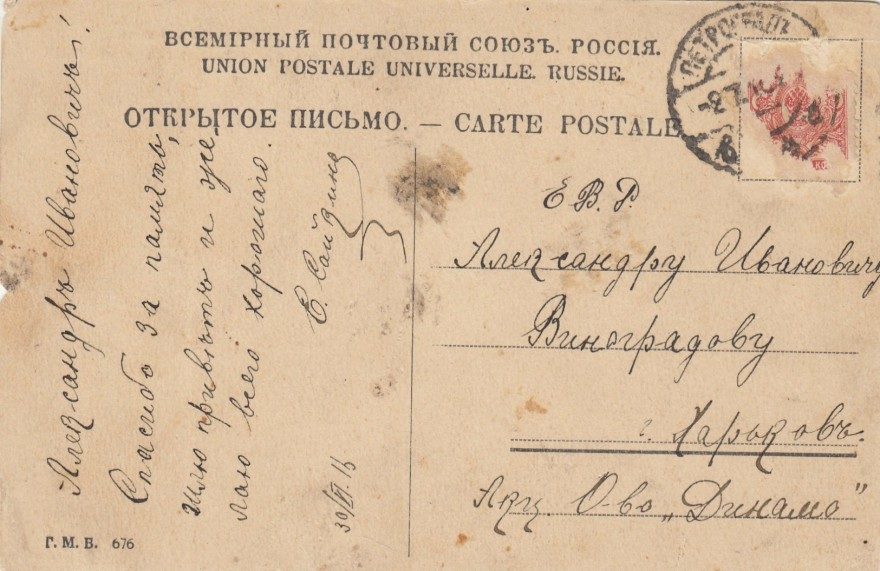 ВСЕМІРНЫЙ ПОЧТОВЫЙ СОЮЗЪ. РОССІЯ.
UNION POSTALE UNIVERSELLE. RUSSIE.
ОТКРЫТОЕ ПИСЬМО. — CARTE POSTALE
ПЕТРОГРАДЪ
Александръ Ивановичъ!
Спасибо за память,
шлю привѣтъ и же
лаю всего хорошаго.
Е. Сайкина
30/VI. 16
Е В. Р.
Александру Ивановичу
Виноградову
г. Харьковъ.
Акц. О-во „Динамо"
Г. М. Б. 676